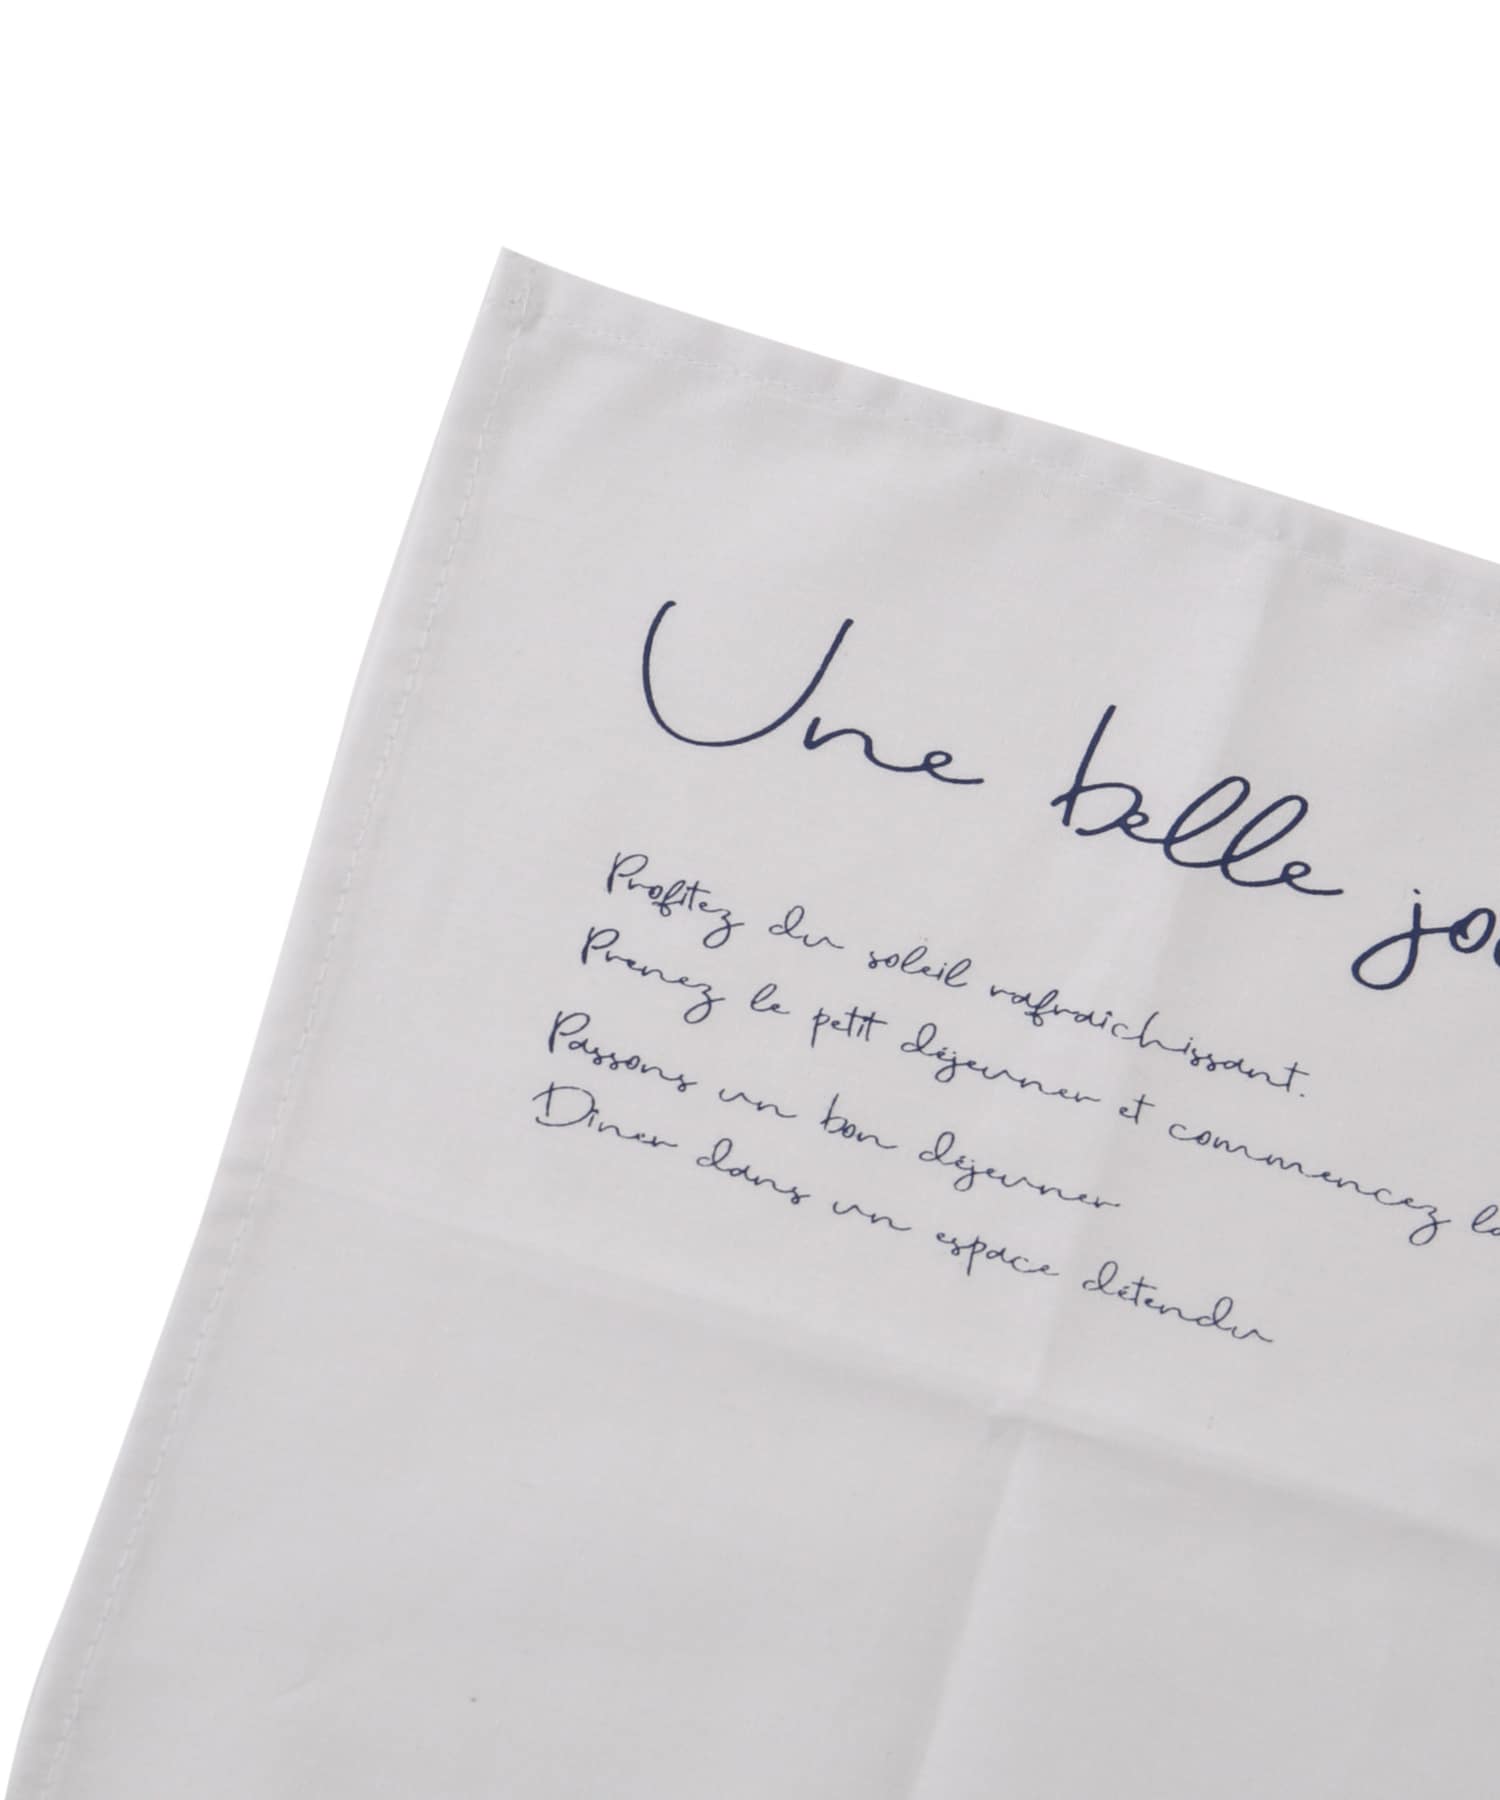 Une belle
Profitez du soleil rafraichissant.
Prenez le petit déjeuner et commencez
Passons un bon déjeuner
Dîner dans un espace détendu